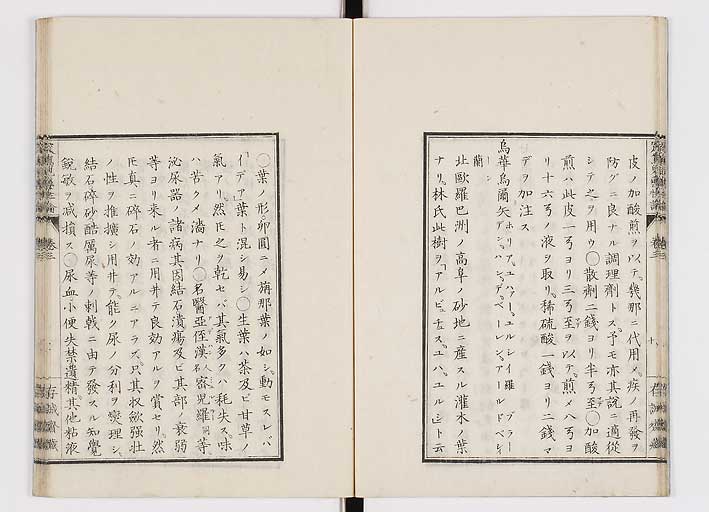 皮ノ加酸煎ヲ以テ幾那ニ代用メ疾ノ再發ヲ
防グニ良ナル調理劑トス予モ亦其説ニ適從
シテ之ヲ用ウ○散劑二錢ヨリ半弓至○加酸
煎ハ此皮一弓ヨリ三弓至ヲ以テ煎メ八弓ヨ
リ十六弓ノ液ヲ取リ稀硫酸一錢ヨリ二錢マ
デヲ加注ス
烏華烏爾矢
蘭
北歐羅巴洲ノ高阜ノ砂地ニ産スル灌木ノ葉
ナリ林氏此樹ヲアルビュチュス、ユハ、ユルシト云
○葉ノ形ハ卵圓ニメ旃那葉ノ如シ動モスレバ
イデア葉ト混シ易シ○生葉ハ茶及ビ甘草ノ
氣アリ然𪜈之ヲ乾セバ其氣多クハ耗失ス味
ハ苦クメ濇ナリ○名醫亞侄漢名家児羅同等
泌尿器ノ諸病其因結石潰瘍及ビ其部ノ衰弱
等ヨリ來ル者ニ用井テ良効アルヲ賞セリ然
𪜈真ニ碎石ノ効アルニアラズ只其收斂強壮
ノ性ヲ推擴シ用井テ能ク尿ノ分利ヲ變理シ
結石碎砂酷厲尿等ノ刺戟ニ由テ發スル知覺
鋭敏ヲ減損ス○尿血小便失禁遺精其他粘液